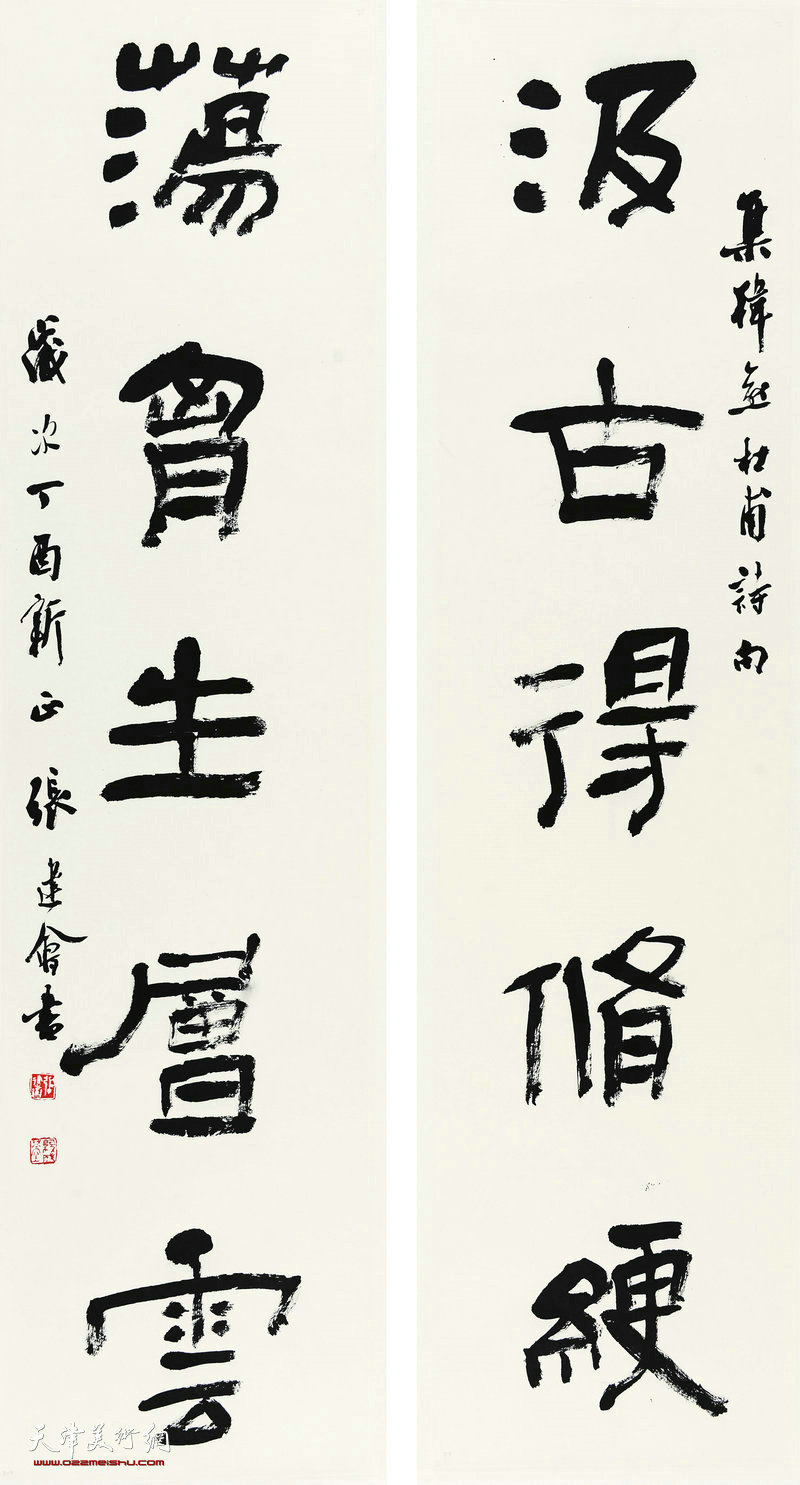 汲古得脩綆
集韓愈杜甫詩句
蕩胷生層雲
歲次丁酉新正張建會書
天津美術網
www.022meishu.com